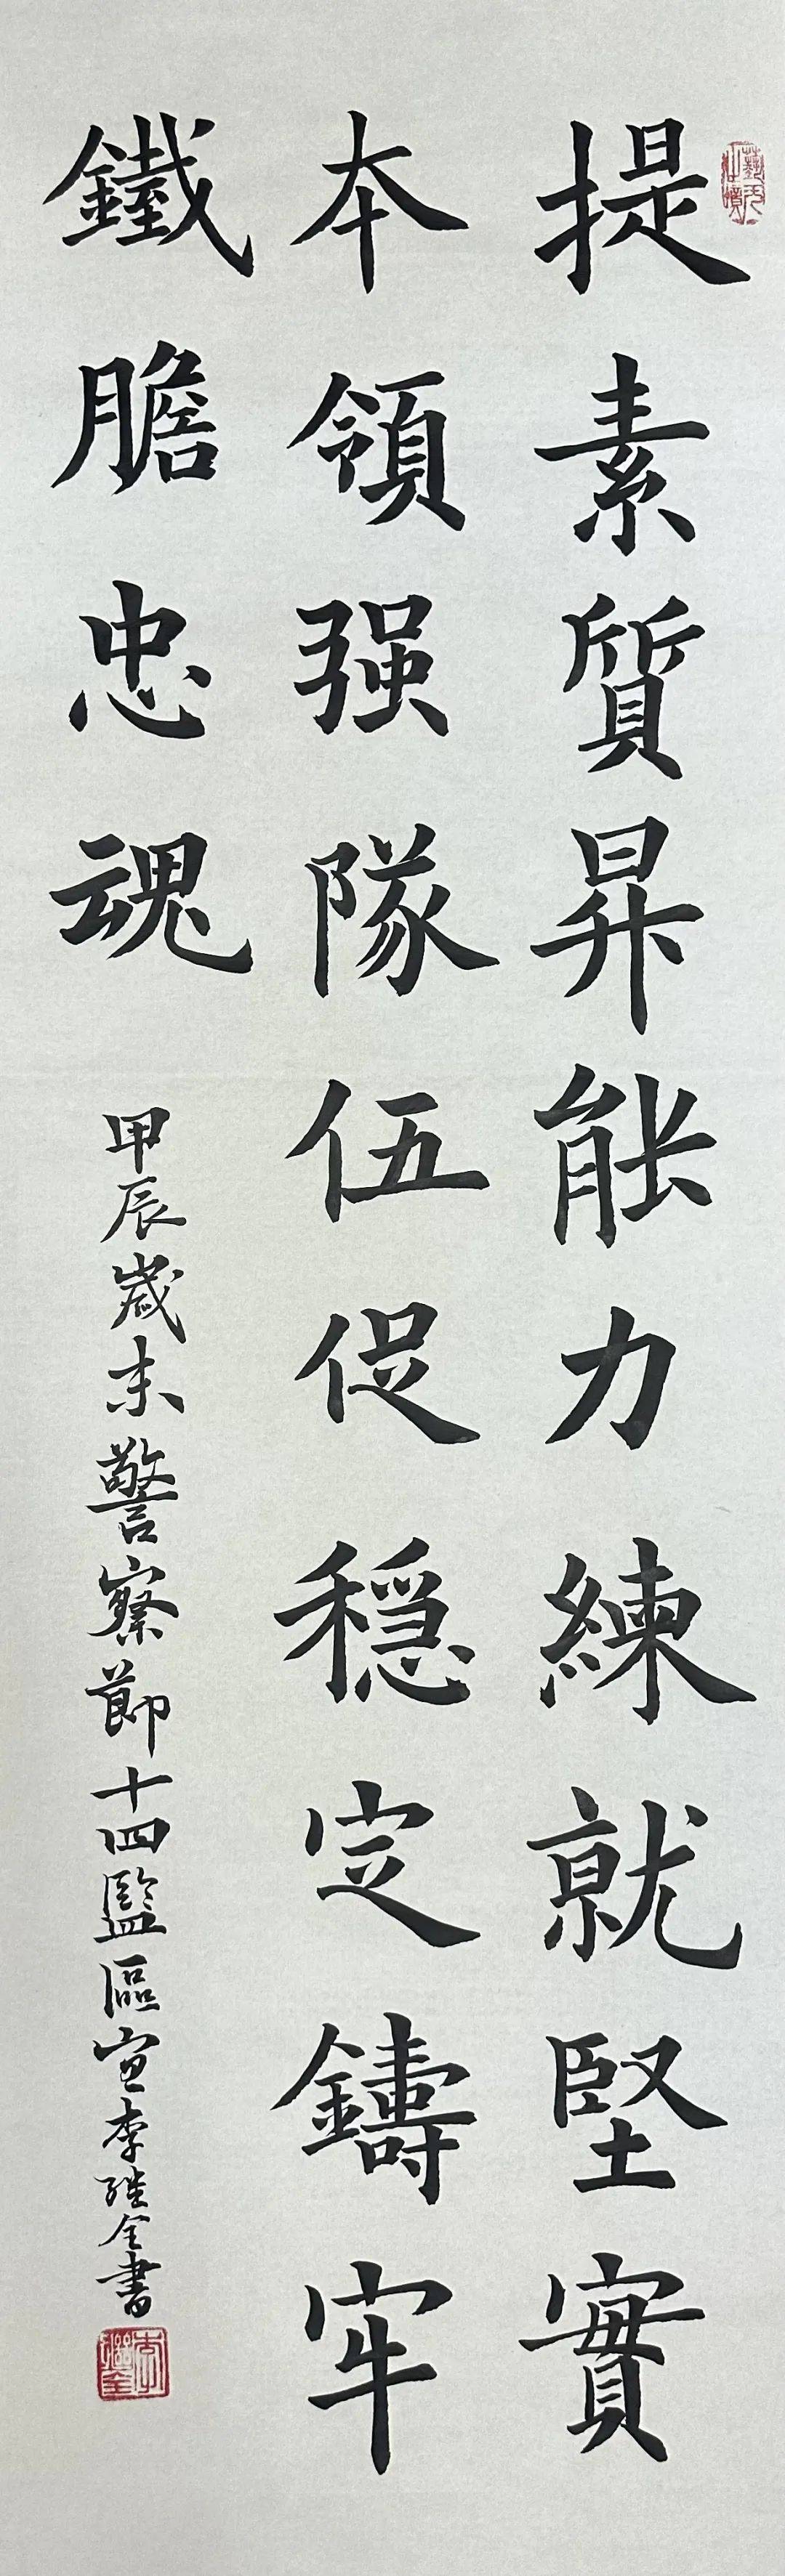 提素質昇能力練就堅實
本領强隊伍促穩定鑄牢
鐵膽忠魂
甲辰歲末警察節十四監區宣李继全書
李繼全